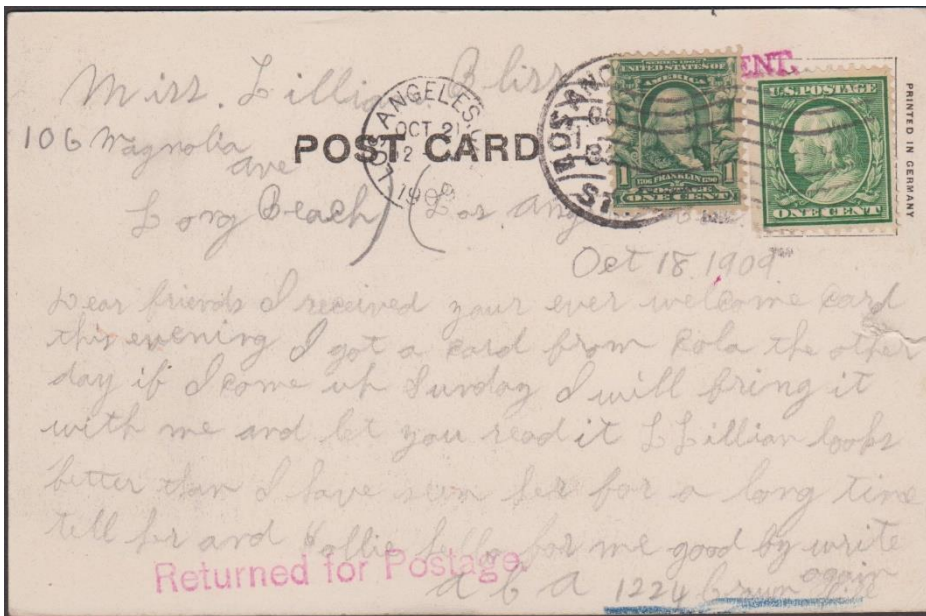 Miss. Lillian Bliss
106 Magnolia
ave
POST CARD
LOS ANGELES,
OCT 21
1909
Long Beach Los Ang
ENT.
SERIES 1902
UNITED STATES OF
AMERICA
1 FRANKLIN 1
POSTAGE
ONE CENT
U.S. POSTAGE
ONE CENT
PRINTED IN GERMANY
Oct 18. 1909
Dear friends I received your ever welcome card
this evening I got a card from Cola the other
day if I come up Sunday I will bring it
with me and let you read it L Lillian looks
better than I have seen her for a long time
tell her and hello for me good by write
again
Returned for Postage
a b a 1224